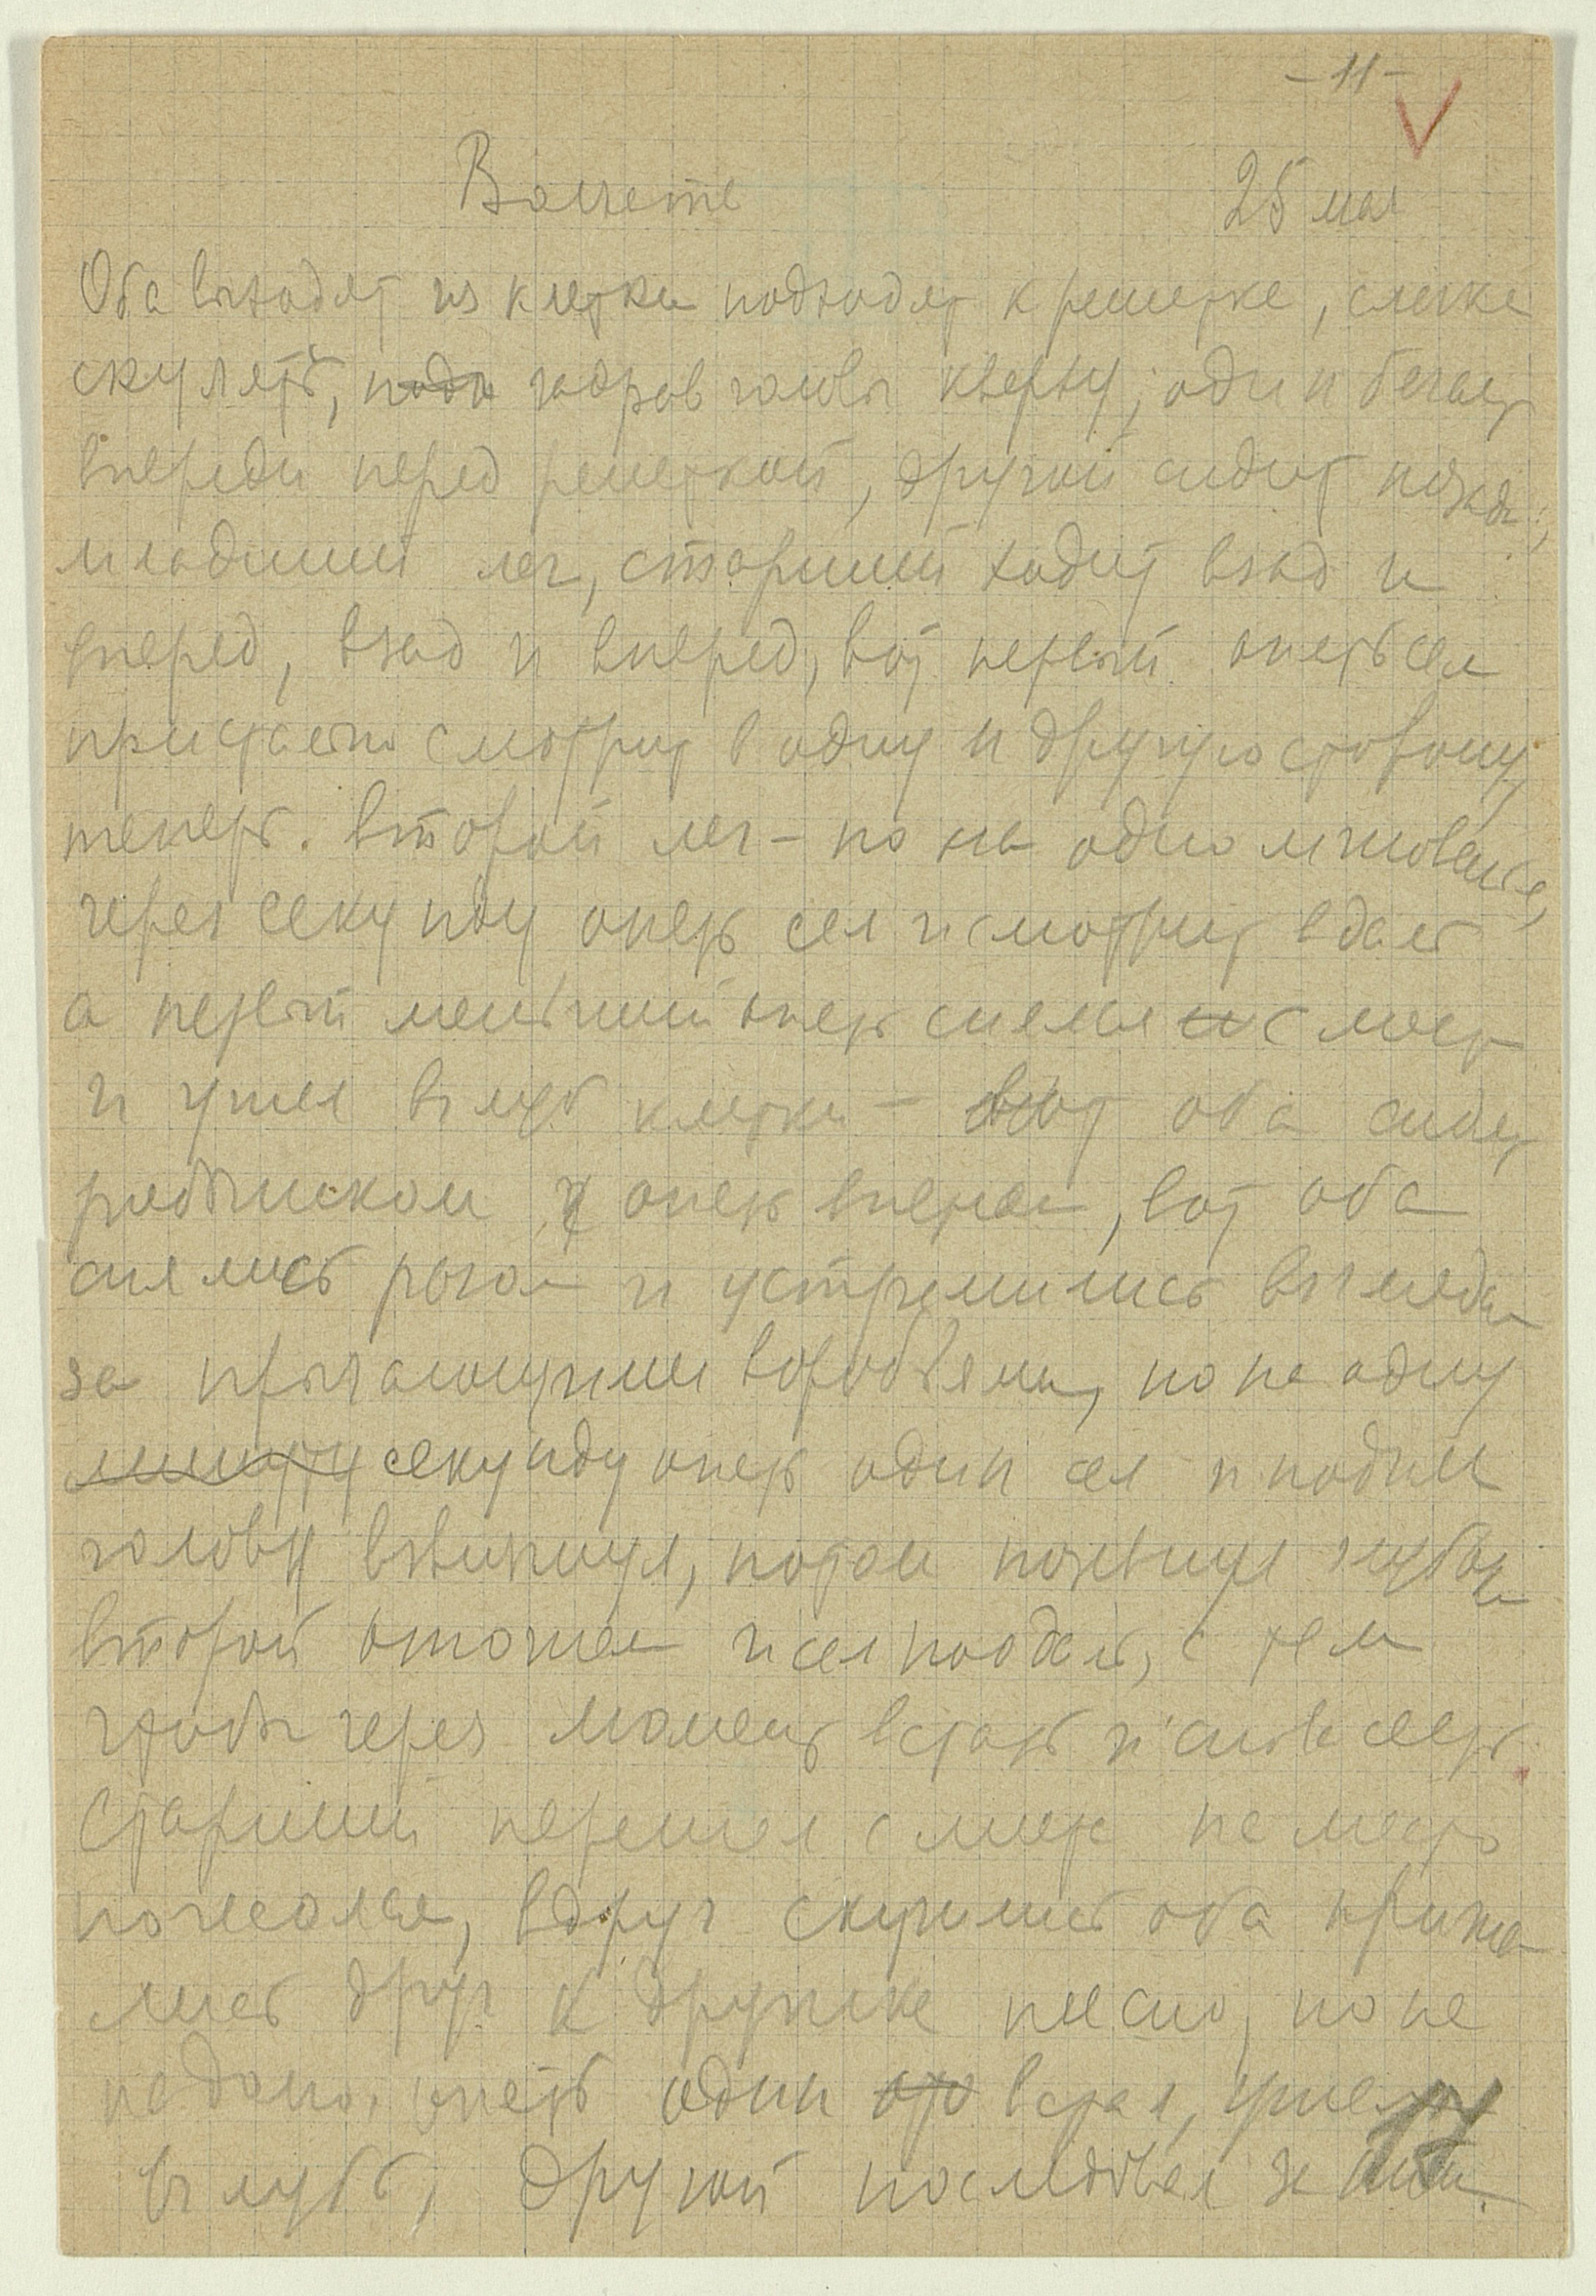 -11-
Волчата 25 мая
Оба выходят из клетки подходят к решетке, слегка
скулять, задрав головы кверху, один бегает
впереди перед решеткой, другой сидит позади;
младший лег, старший ходит взад и
вперед, взад и вперед, вот первый опять сел
пристально смотрит в одну и другую сторону,
теперь. второй лег - но на одно мгновение,
через секунду опять сел и смотрит вдаль
а первый меньший опять с мест
и ушел вглубь клетки - вот оба сидят
рядышком опять вперед, вот оба
снялись разом и устремились взглядом
за прыгающими воробьями, но не одну
минуту секунду опять один сел и подняв
голову взвизгнул, потом ляскнул зубами
второй отошел и сел поодаль, с тем
чтобы через момент встать и снова сесть.
Старший перешел с места на место
вдруг скучились оба прижа
лись друг к дружке тесно, но не
надолго, опять один встал, ушел
вглубь, другой последовал за ним.
17